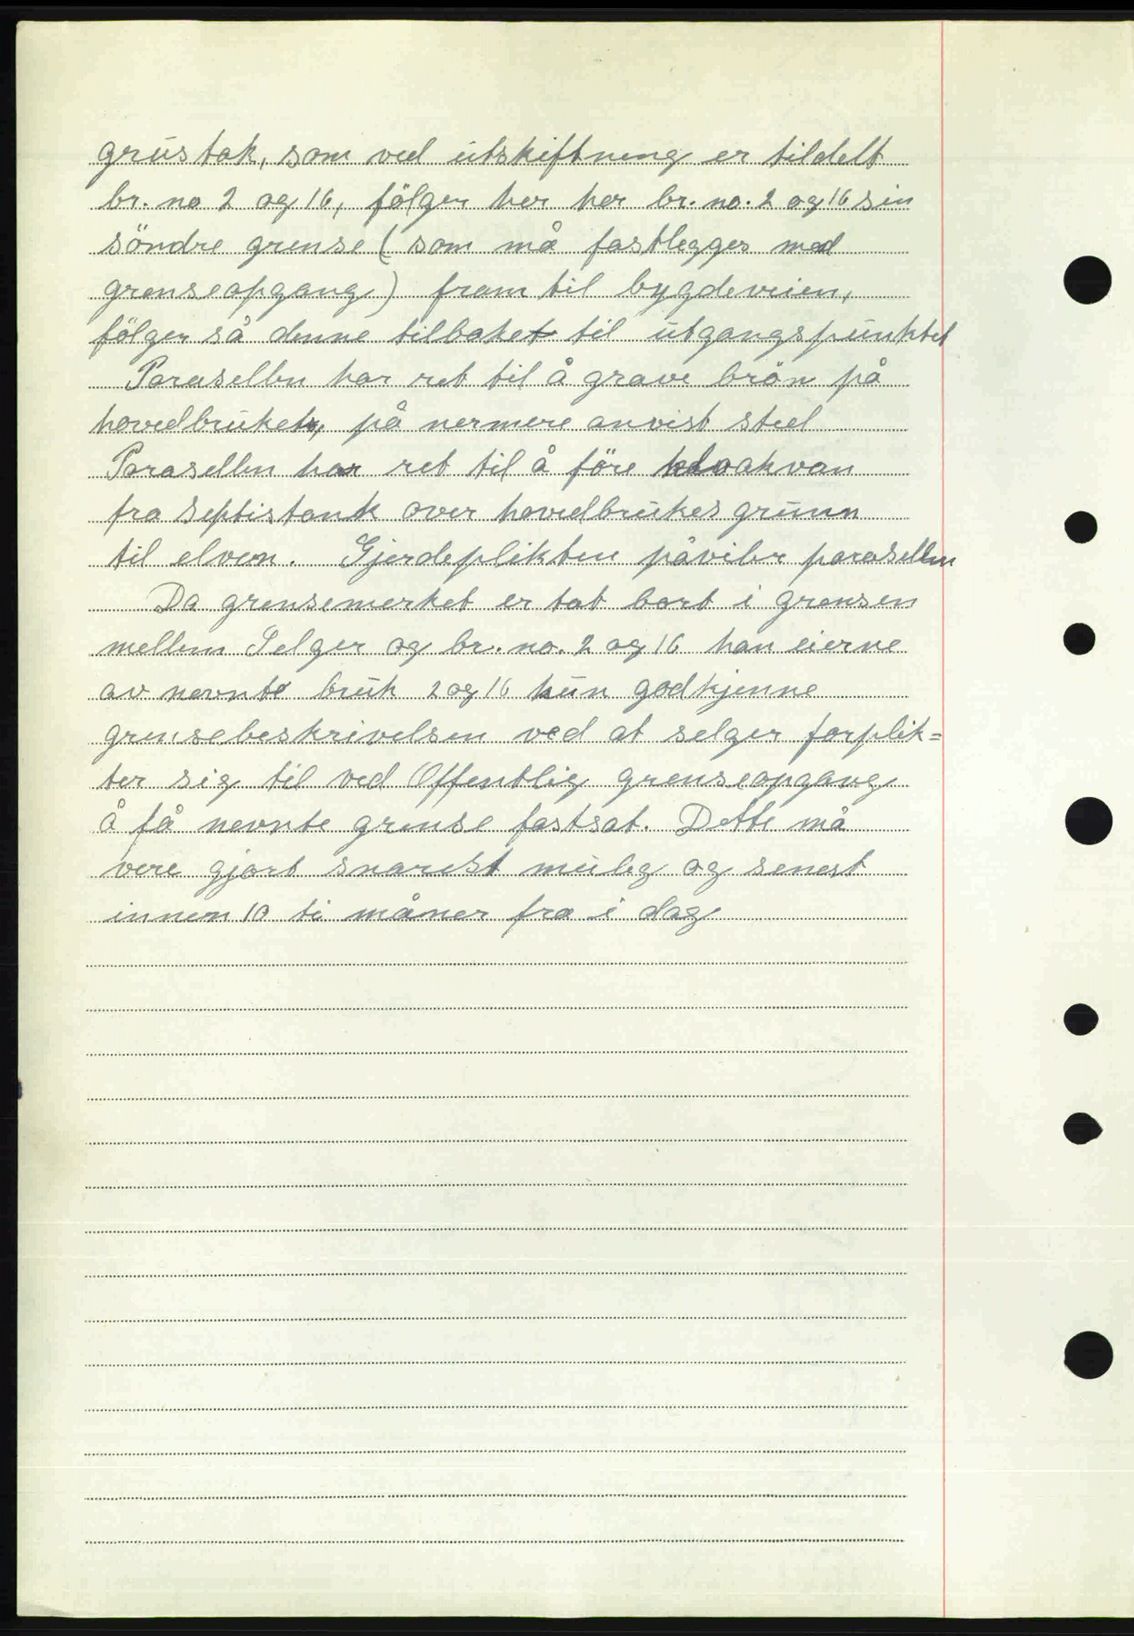 grustak, som ved utskiftning er tildelt
br. no 2 og 16, følger her her br. no. 2 og 16 sin
söndre grense ( som må fastlegges med
grenseopgang) fram til bygdeveien,
følger så denne tilbaket til utgangspunktet
Parasellen har ret til å grave brön på
hovedbruket, på nermere anvist sted
Parasellen har ret til å före kloakvan
fra septistank over hovedbrukes grunn
til elven. Gjerdeplikten påviler parasellen
Da grensemerket er tat bort i grensen
mellem Selger og br. no. 2 og 16 kan eierne
av nevnte bruk 2 og 16 kun godkjenne
grensebeskrivelsen ved at selger forplik=
ter sig til ved Offentlig grenseopgang
å få nevnte grense fastsat. Dette må
vere gjort snarest mulig og senest
innen 10 ti måner fra i dag